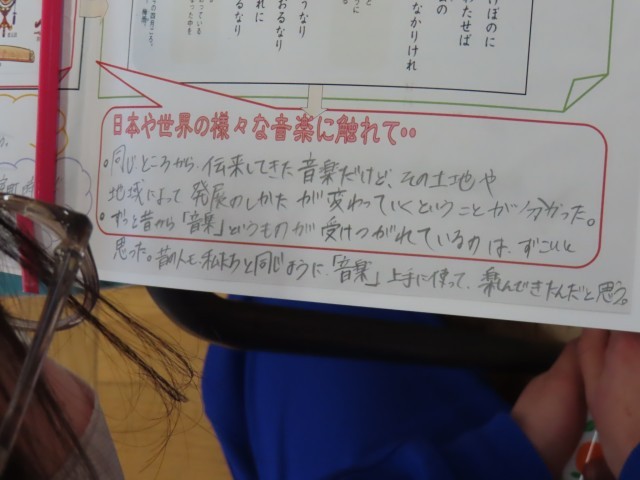 けぼのに
わたせば
なかりけれ
うなり
おるなり
れに
なり
日本や世界の様々な音楽に触れて・・
・同じところから、伝来してきた音楽だけど、その土地や
地域によって発展のしかたが変わっていくということが分かった。
・ずっと昔から「音楽」というものが受けつがれているのは、すごいと
思った。昔の人も私たちと同じように、「音楽」上手に使って、楽しんできたんだと思う。